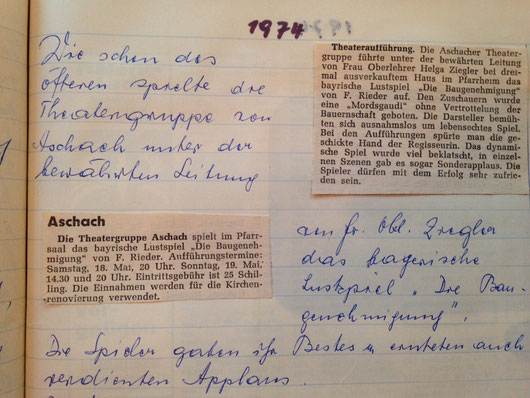 1974
Wie schon des
öfteren spielte die
Theatergruppe von
Aschach unter der
bewährten Leitung
Theateraufführung. Die Aschacher Theater-
gruppe führte unter der bewährten Leitung
von Frau Oberlehrer Helga Ziegler bei drei-
mal ausverkauftem Haus im Pfarrheim das
bayrische Lustspiel „Die Baugenehmigung"
von F. Rieder auf. Den Zuschauern wurde
eine „Mordsgaudi" ohne Vertrottelung der
Bauernschaft geboten. Die Darsteller bemüh-
ten sich ausnahmslos um lebensechtes Spiel.
Bei den Aufführungen spürte man die ge-
schickte Hand der Regisseurin. Das dynami-
sche Spiel wurde viel beklatscht, in einzel-
nen Szenen gab es sogar Sonderapplaus. Die
Spieler dürfen mit dem Erfolg sehr zufrie-
den sein.
Aschach
Die Theatergruppe Aschach spielt im Pfarr-
saal das bayrische Lustspiel „Die Baugeneh-
migung" von F. Rieder. Aufführungstermine:
Samstag, 18. Mai, 20 Uhr. Sonntag, 19. Mai,
14.30 und 20 Uhr. Eintrittsgebühr ist 25 Schil-
ling. Die Einnahmen werden für die Kirchen-
renovierung verwendet.
von Fr. Obl. Ziegler
das bayerische
Lustspiel „Die Bau-
genehmigung".
Die Spieler gaben ihr Bestes u. ernteten auch
verdienten Applaus.